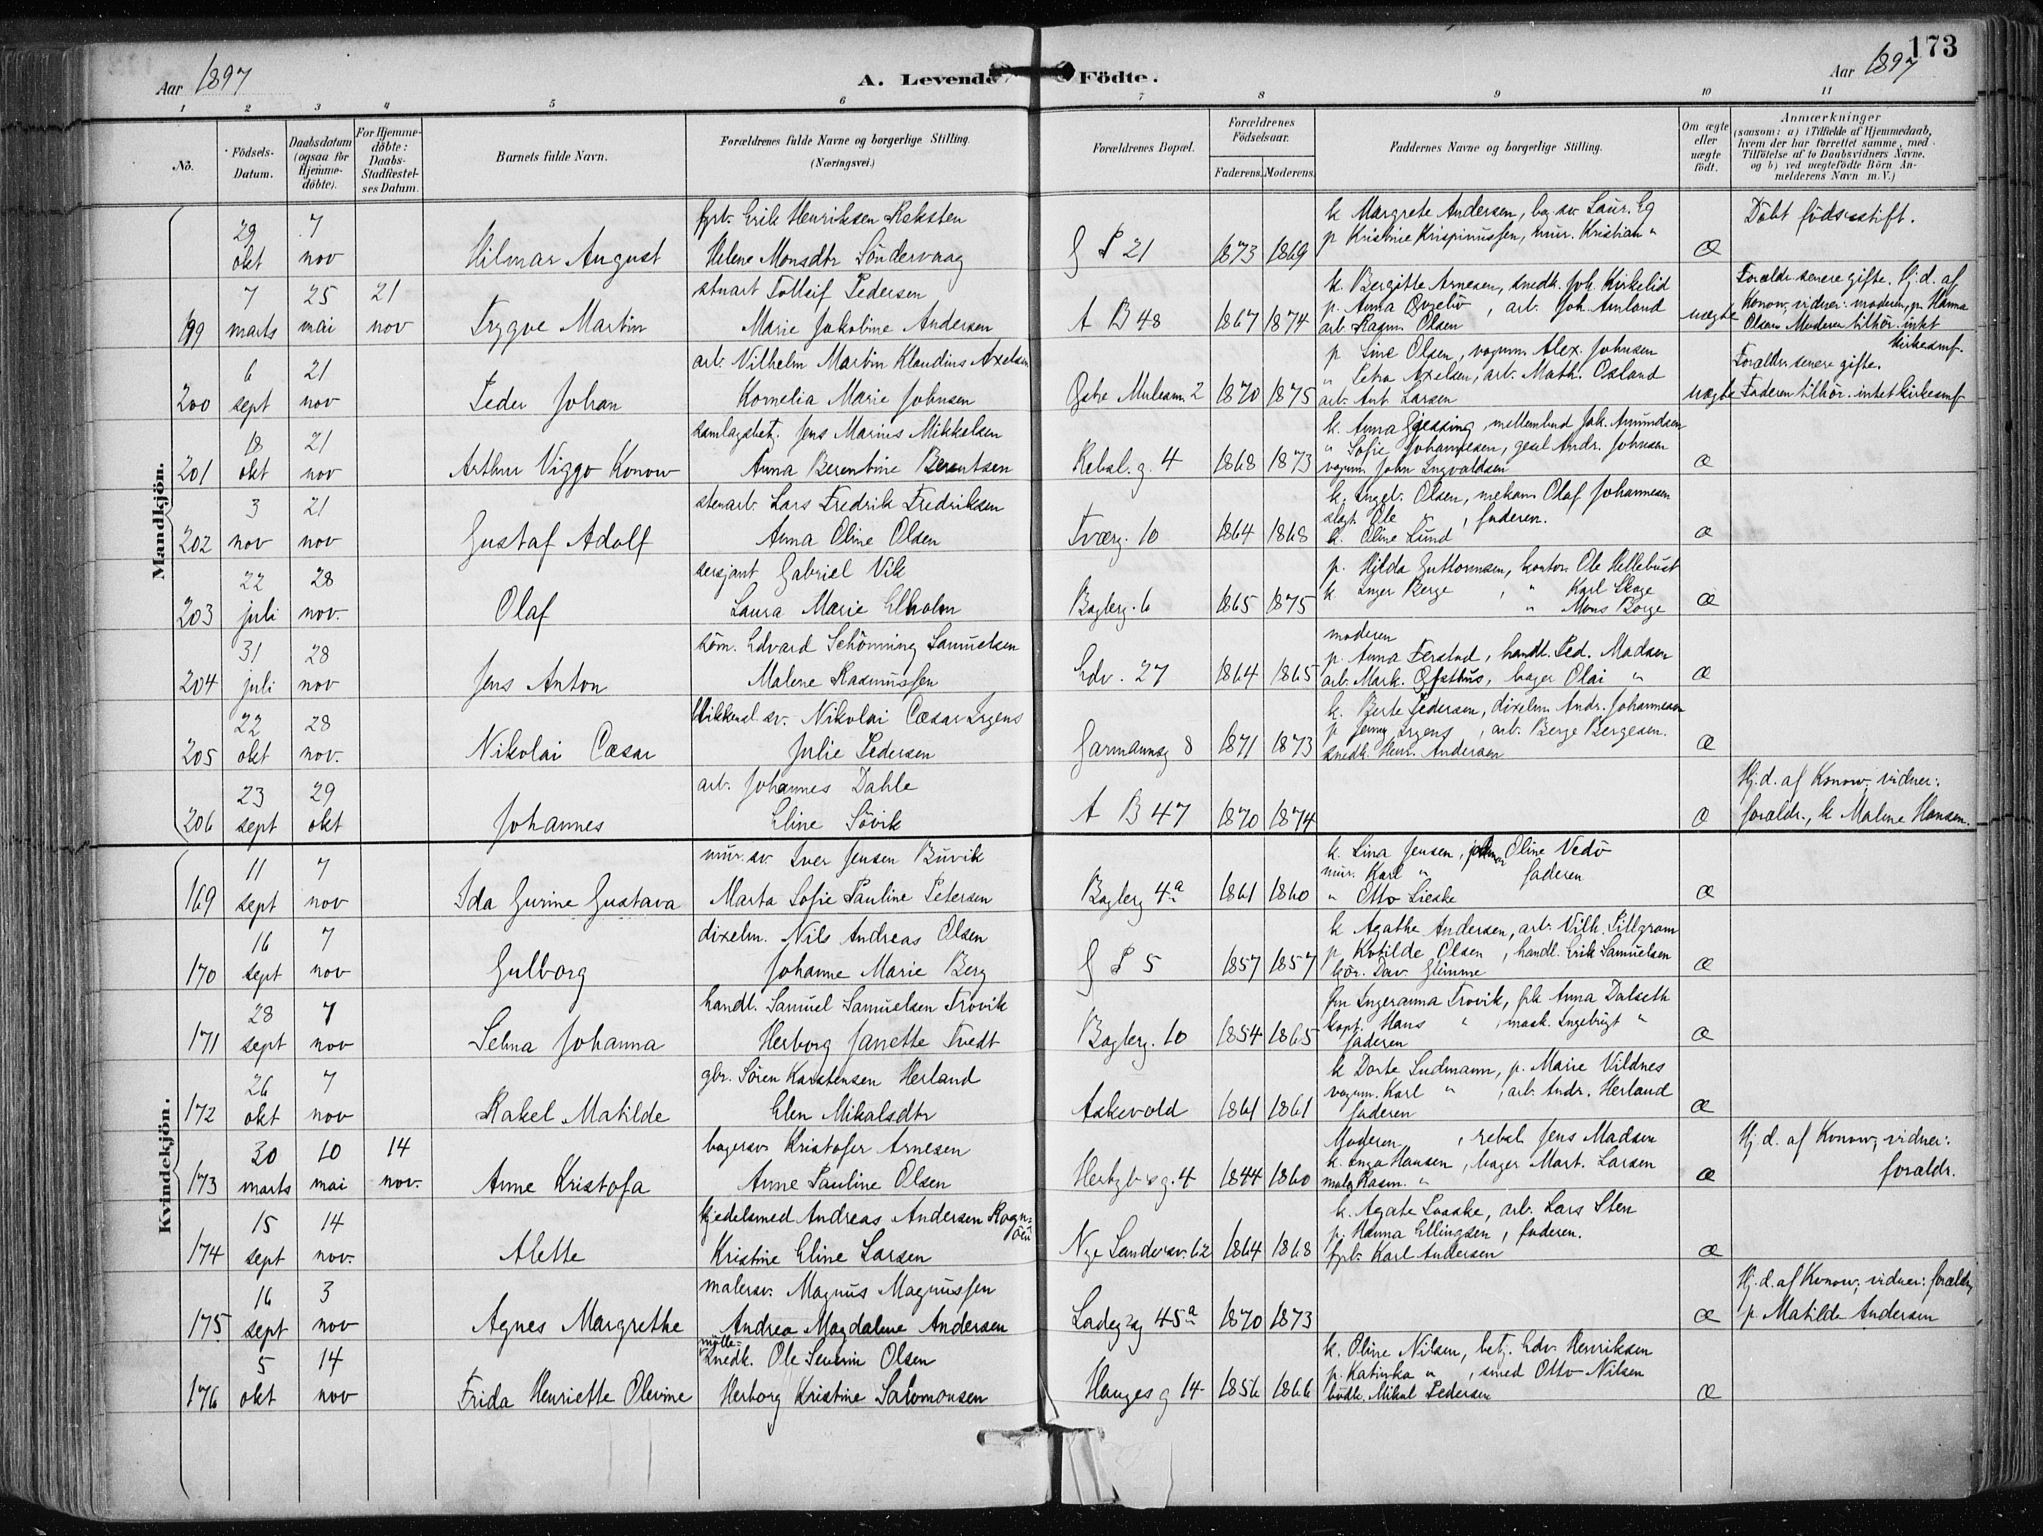 173
Aar 1897
A. Levende Födte.
Aar 1897
1 2 3 4 5 6 7 8 9 10 11
No.
Födsels-Datum.
Daabsdatum (ogsaa for Hjemme-döbte).
For Hjemme-döbte: Daabs-Stadfæstel-ses Datum.
Barnets fulde Navn.
Forældrenes fulde Navne og borgerlige Stilling.
(Næringsvei.)
Forældrenes Bopæl.
Forældrenes Födselsaar.
Faderens. Moderens.
Faddernes Navne og borgerlige Stilling.
Om ægte eller uægte födt.
Anmærkninger
(saasom: a) i Tilfælde af Hjemmedaab,
hvem der har forrettet samme, med
Tilföielse af to Daabsvidners Navne,
og b) ved uægtefödte Börn An-
melderens Navn m. V.)
Mandkjön.
29 okt 7 nov Hilmar August
fprb. Erik Henriksen Reksten
Helene Monsdtr Söndervaag
G P 21 1873 1869
k Margrete Andersen, bag. sv. Laur. Eg
p Kristine Krispinussen, mur. Kristian "
Æ
Döbt föds.stift.
199 7 marts 25 mai 21 nov Trygve Martin
stuart Tolleif Pedersen
Marie Jakobine Andersen
A B 48 1867 1874
k. Bergitte Arnesen, snedk. Joh. Kirkelid
p. Anna , arb. Joh. Amland
arb. Rasm. Olsen
uægte
Forældr. senere gifte. Hj. d. af
Konow, vidner: moderen, p. Hanna
Olsen. Moderen tilhör. intet
kirkesmf.
200 6 sept 21 nov Peder Johan
arb. Vilhelm Martin Klaudius Axelsen
Kornelia Marie Johnsen
Östre Muleam. 2 1870 1875
p Line Olsen, vognm. Alex. Johnsen
" Petra Axelsen, arb. Math. Osland
arb. Ant. Larsen
uægte
Forældr. senere gifte.
Faderen tilhör. intet kirkesmf
201 18 okt 21 nov Arthur Viggo Konow
samlagsbetj. Jens Marius Mikkelsen
Anna Berentine Berentsen
Rebsl. g. 4 1868 1873
k. Anna Gjessing, mellembud Joh. Amundsen
" Sofie Johannesen, gesel Andr. Johnsen
vognm. John Ingvaldsen
æ
202 3 nov 21 nov Gustaf Adolf
stenarb. Lars Fredrik Fredriksen
Anna Oline Olsen
Tværg. 10 1864 1868
k. Ingeb. Olsen, mekan. Olaf Johannesen
slagt. Ole " , faderen.
k. Oline Lund
æ
203 22 juli 28 nov. Olaf
sersjant Gabriel Vik
Laura Marie Elholm
Bagleg. 6 1865 1875
p. Hylda Guttormsen, kontor. Ole Hellebust
k. Inger Berge , " Karl Skage
" Mons Borge
Æ
204 31 juli 28 nov Jens Anton
söm. Edvard Schönning Samuelsen
Malene Rasmussen
Edv. 27 1864 1865
moderen
p. Anna Ferstad, handl. Ped. Madsen
arb. Mark. Ofsthus, bager Olai "
Æ
205 22 okt 28 nov. Nikolai Cæsar
blikkensl. sv. Nikolai Cæsar Irgens
Julie Pedersen
Garmannsg 8 1871 1873
k. Berte Pedersen, dixelm. Andr. Johannesen
p Jenny Irgens , arb. Berge Bergesen.
snedk. Henr. Andersen
Æ
206 23 sept 29 okt Johannes
arb. Johannes Dahle
Eline Sövik
A B 47 1870 1874
Æ
Hj. d. af Konow, vidner:
forældr., k Malene Hansen.
Kvindekjön.
169 11 sept 7 nov Ida Gurine Gustava
mur. sv. Iver Jensen Buvik
Marta Sofie Pauline Petersen
Bagleg 4a 1861 1860
k. Lina Jensen, Oline Vedö
mur. Karl " faderen
" Otto Lieske
Æ
170 16 sept 7 nov Gulborg
dixelm. Nils Andreas Olsen
Johanne Marie Berg
G P 5 1857 1857
k Agathe Andersen, arb. Vilh. Pillgram
p. Kotilde Olsen , handl. Erik Samuelsen
kör. Dav. Glimme
Æ
171 28 sept 7 nov Selma Johanna
handl. Samuel Samuelsen Trovik
Herborg Janette Tvedt
Bagleg. 10 1854 1865
fru Ingeranna Trovik, frk Anna Dalseth
kapt. Hans " , mask. Ingebrigt "
faderen
Æ
172 26 okt 7 nov Rakel Matilde
gbr. Sören Karstensen Herland
Elen Mikalsdtr
Askevold 1861 1861
k Dorte Ludmann, p. Marie Vildnes
vognm. Karl " , arb. Andr. Herland
faderen
Æ
173 30 marts 10 mai 14 nov. Anne Kristofa
bagersv. Kristofer Arnesen
Anne Pauline Olsen
Hertzbergg. 4 1844 1860
Moderen , rebsl. Jens Madsen
k. Inga Hansen, bager Mart. Larsen
maler Rasm. "
Æ
Hj. d. af Konow, vidner:
forældr.
174 15 sept 14 nov. Alette
kjedelsmed Andreas Andersen Rogn=
öen
Kristine Eline Larsen
Nye Sandersv. 62 1864 1868
k. Agate Laaske, arb. Lars Sten
p. Hanna Ellingsen, faderen.
fprb. Karl Andersen
Æ
175 16 sept 3 nov Agnes Margrethe
malersv. Magnus Magnussen
Andrea Magdalene Andersen
Ladeg.g 45a 1870 1873
Æ
Hj. d. af Konow, vidner: forældr,
p. Matilde Andersen
176 5 okt 14 nov Frida Henriette Olevine
mölle-
snedk. Ole Severin Olsen
Herborg Kristine Salomonsen
Hauges g 14 1856 1866
k. Oline Nilsen, betj. Edv. Henriksen
p. Katinka " , smed Otto Nilsen
bödk. Mikal Pedersen
Æ